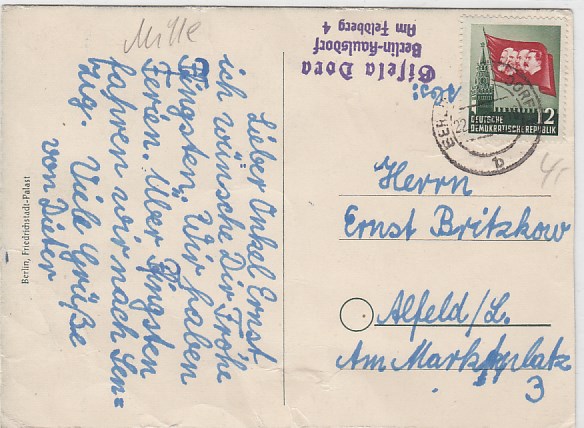 Mitte
Lieber Onkel Ernst
ich wünsche Dir Frohe
Pfingsten. Wir haben
Ferien. Über Pfingsten
fahren wir nach Len=
zug. Viele Grüße
von Dieter
Berlin, Friedrichstadt-Palast
Abs:
Gisela Dora
Berlin-Kaulsdorf
Am Feldberg 4
DEUTSCHE
DEMOKRATISCHE REPUBLIK
12
BERLIN
22
b
Herrn
Ernst Britzkow
Alfeld/L.
Am Marktplatz
3